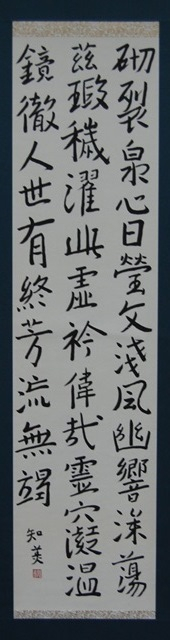 砌裂泉心日瑩文浅風幽響深蕩
茲瑕穢濯此虚衿偉哉靈穴凝温
鏡徹人世有終芳流無竭
知美